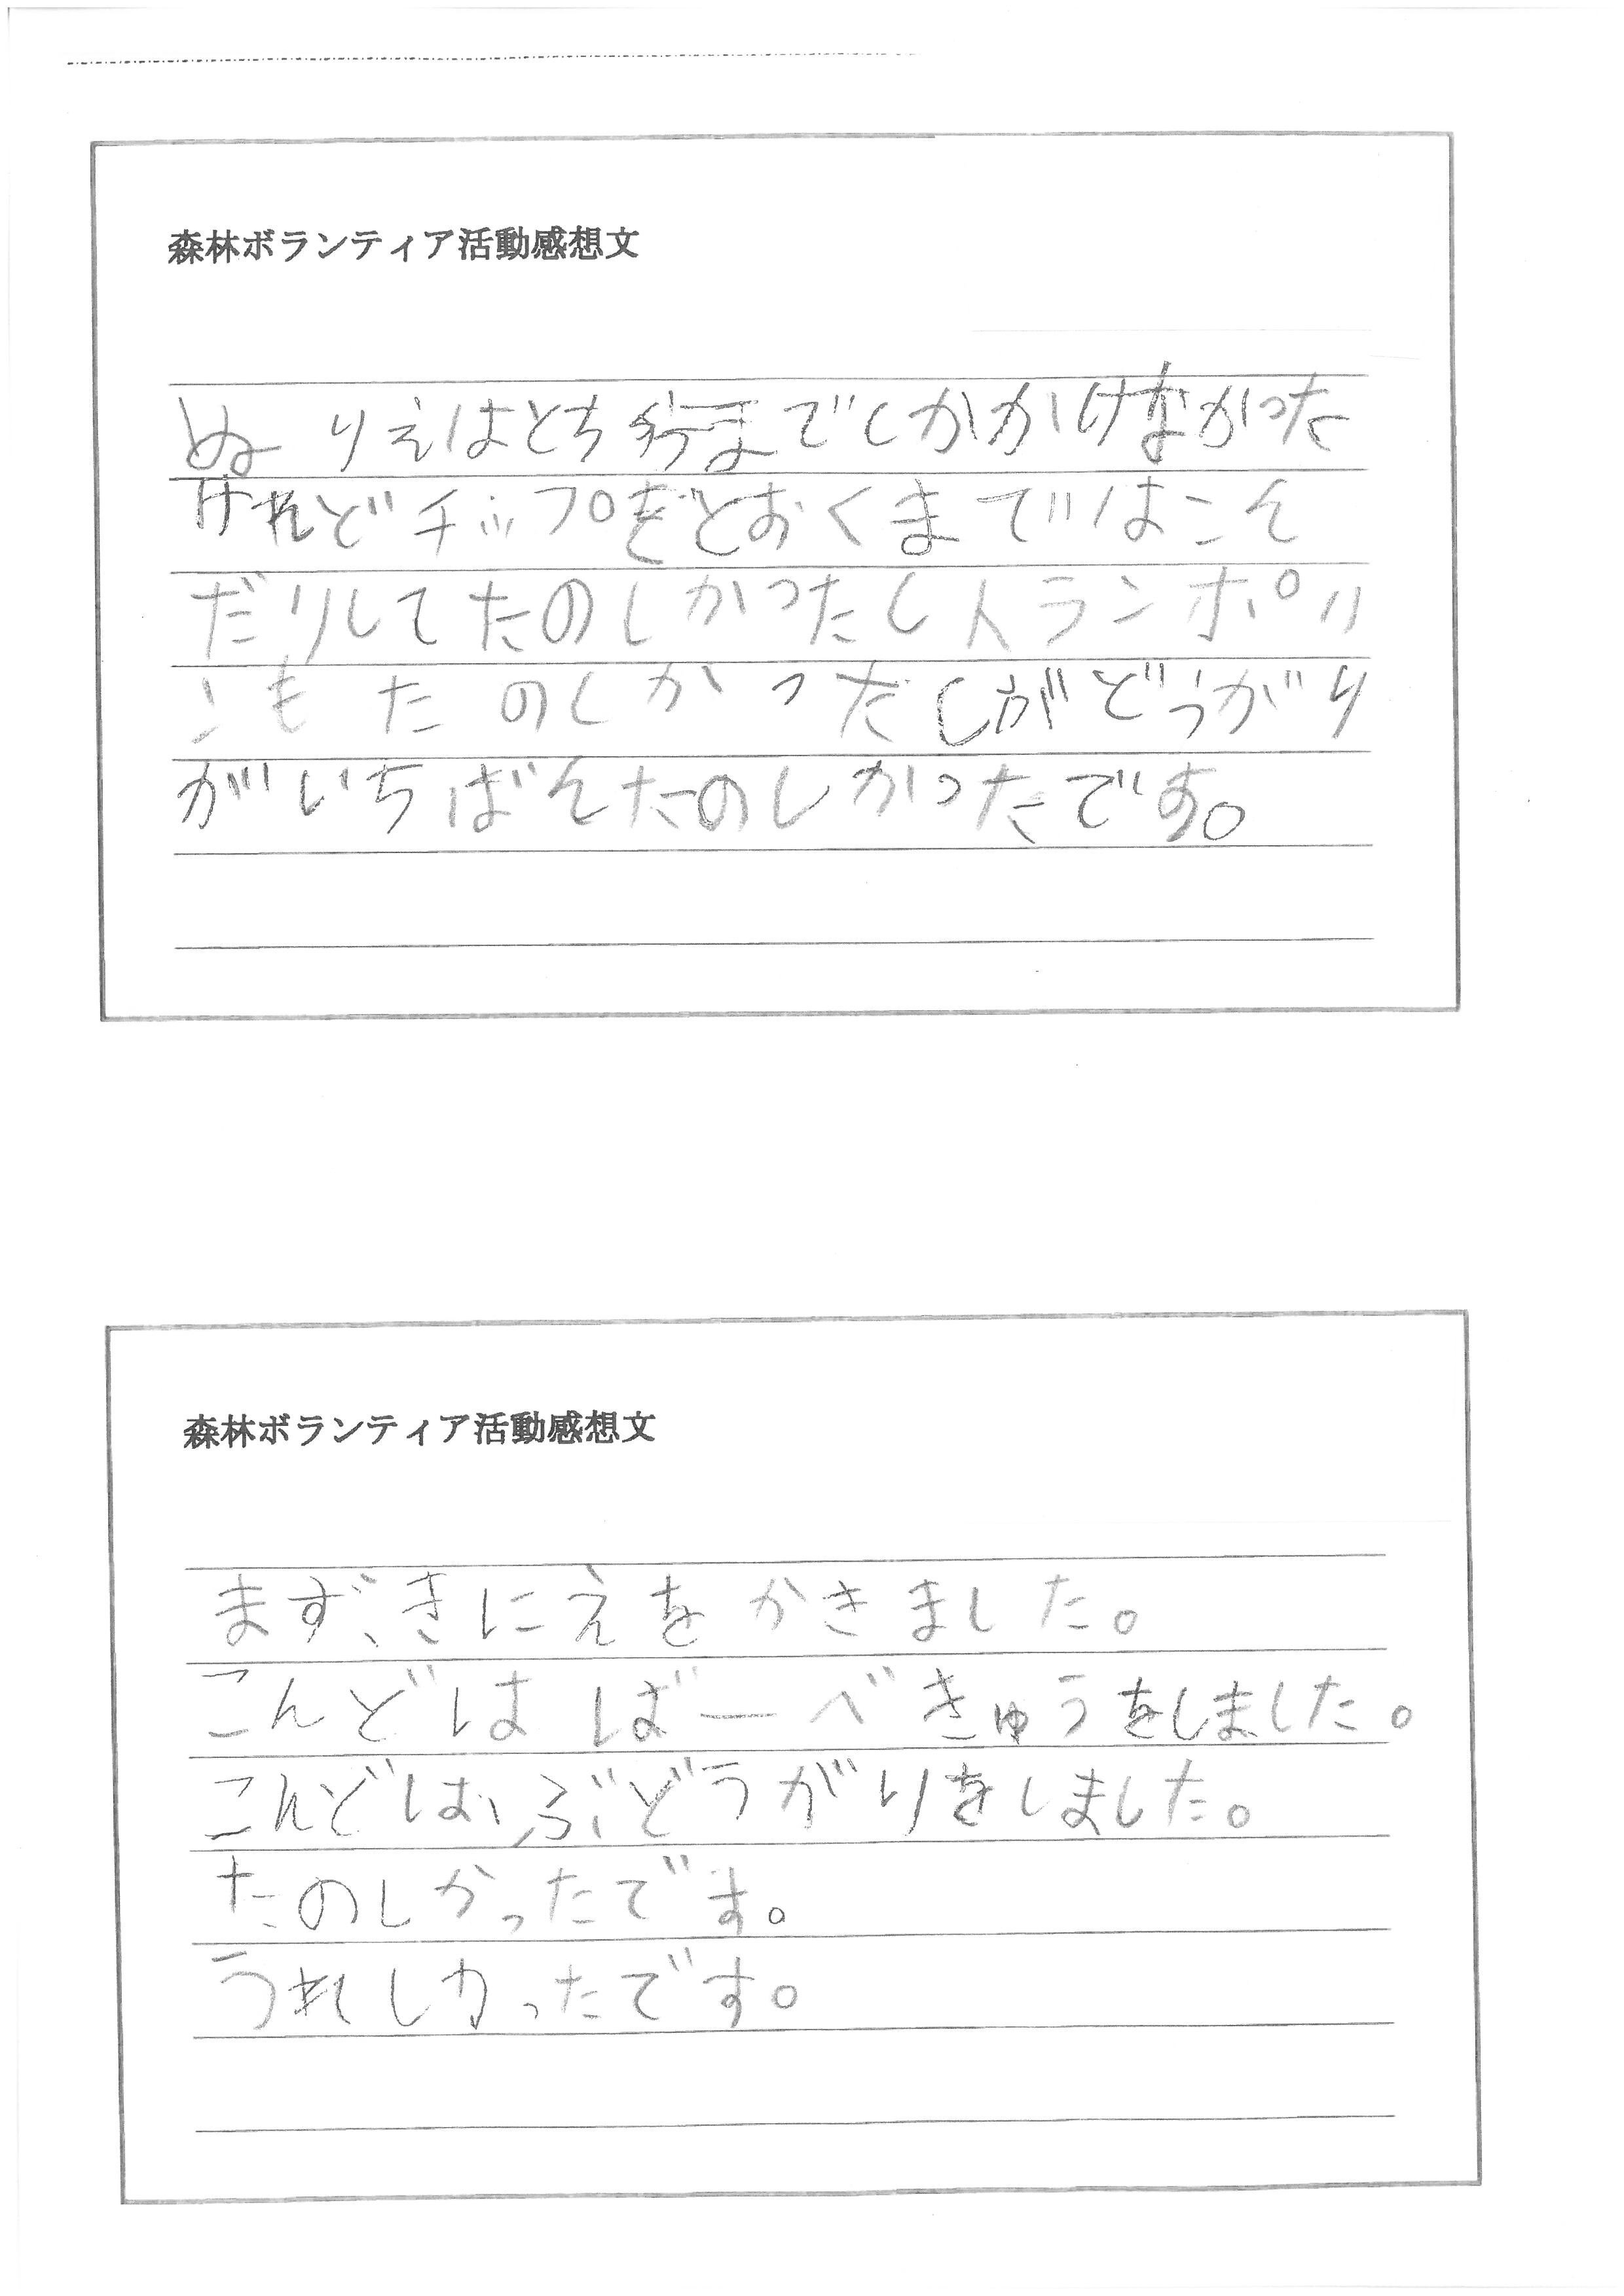 森林ボランティア活動感想文
ぬりえはとち行までしかかけなかった
けれどチップをとおくまではこん
だりしてたのしかったしトランポリ
ンもたのしかったしがどうがり
がいちばんたのしかったです。
森林ボランティア活動感想文
まず、きにえをかきました。
こんどはばーべきゅうをしました。
こんどは、ぶどうがりをしました。
たのしかったです。
うれしかったです。